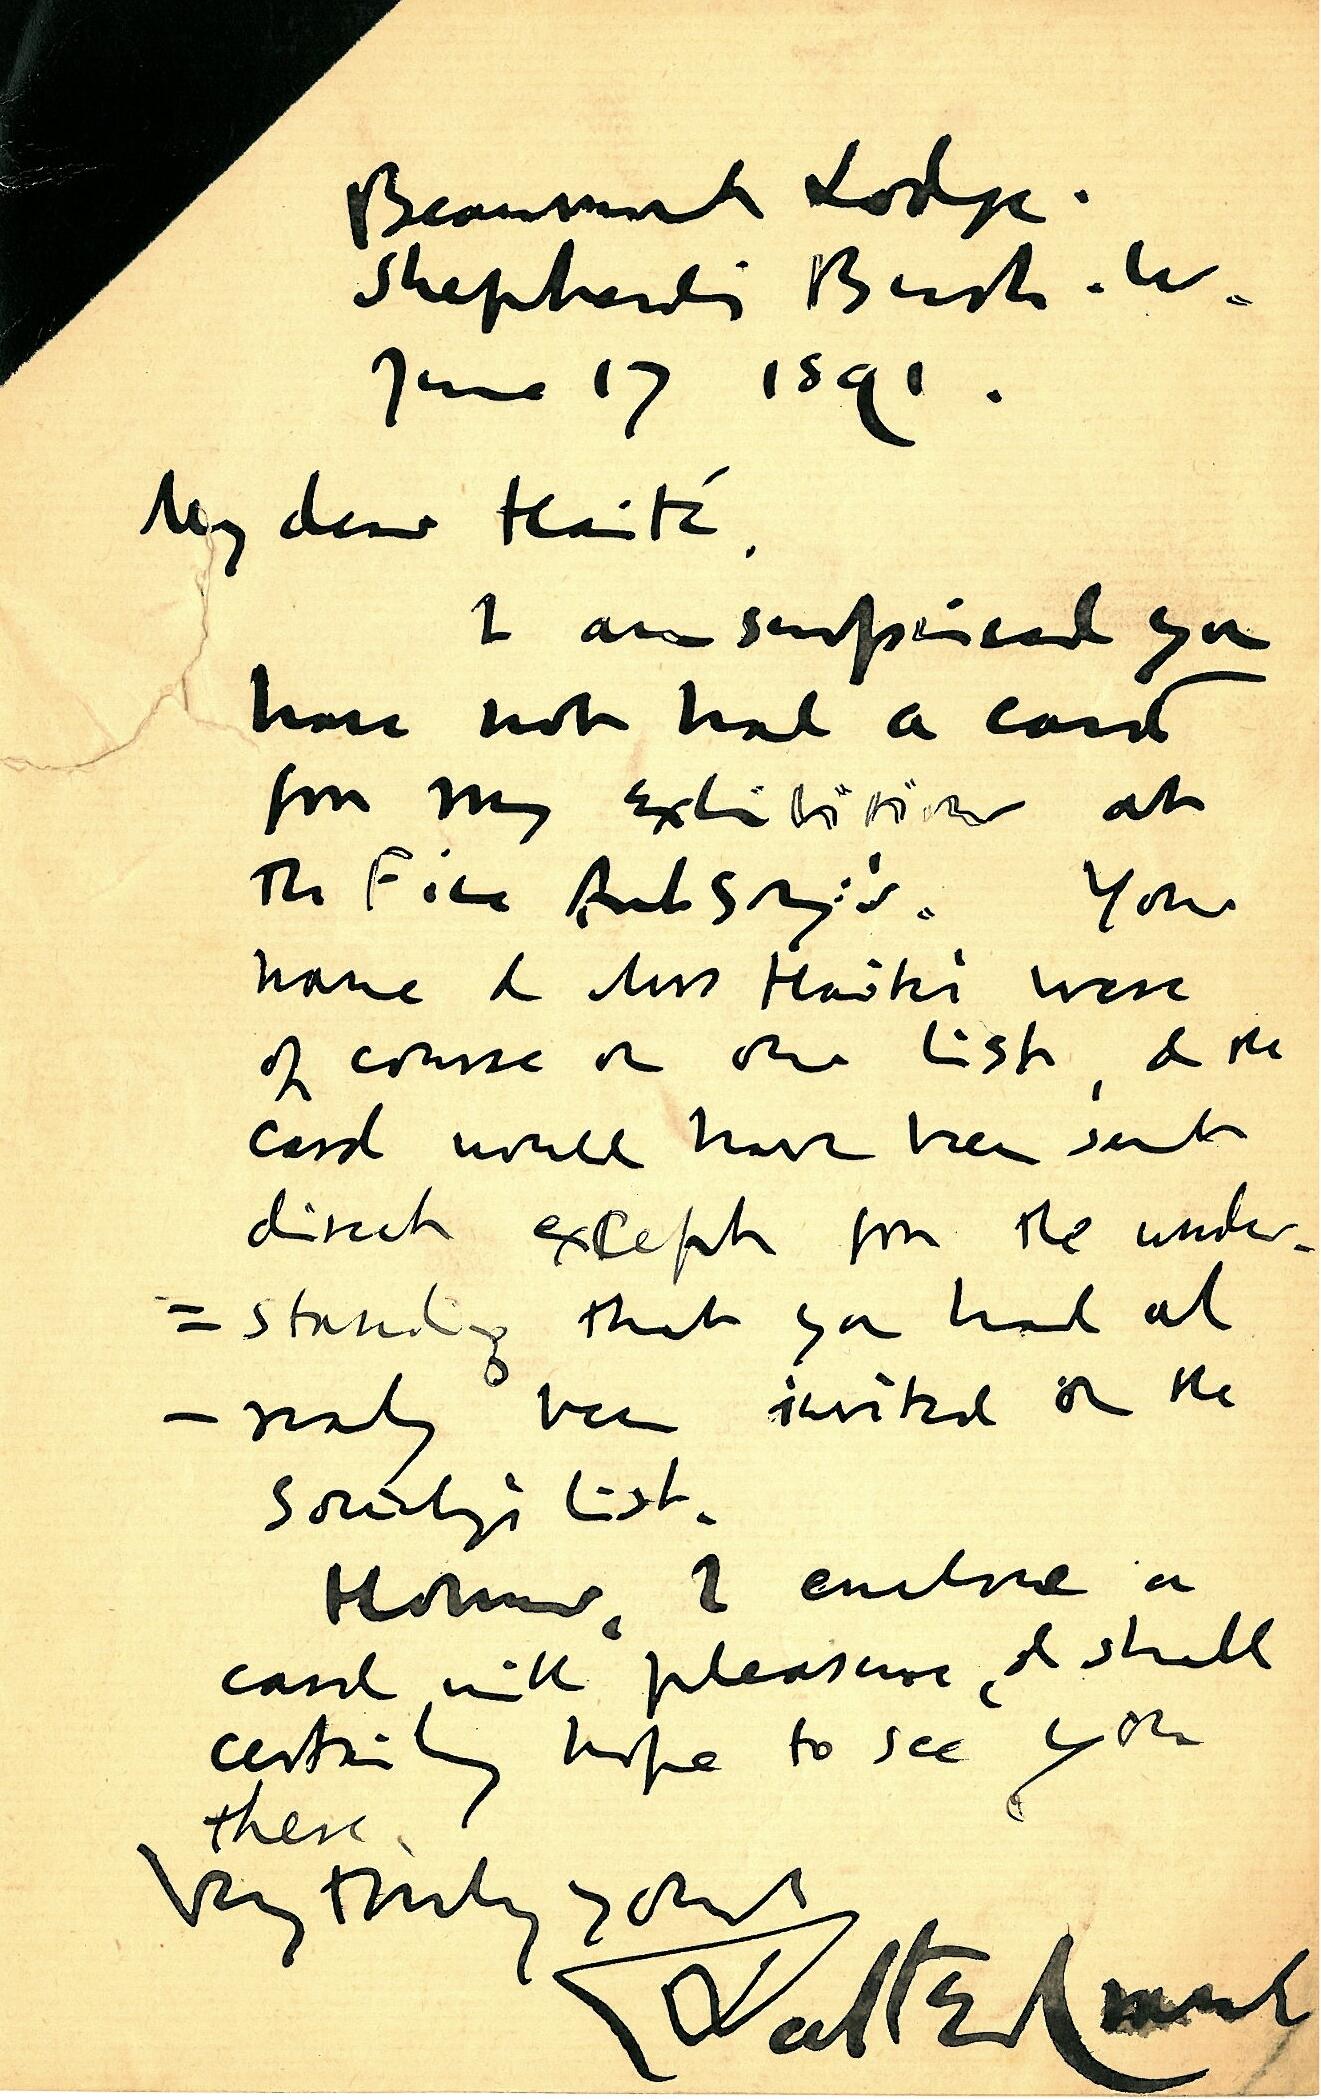 Beaumont Lodge.
Shepherds Bush. W.
June 17 1891.
My dear Haité,
I am surprised you
have not had a card
for my exhibition at
the Fine Art Socy's. Your
name & Mrs Haité's were
of course on our list, & the
card would have been sent
direct except for the under-
=standing that you had al
-ready been invited on the
Society's list.
However, I enclose a
card with pleasure, & shall
certainly hope to see you
there.
Very truly yours
Walter Crane